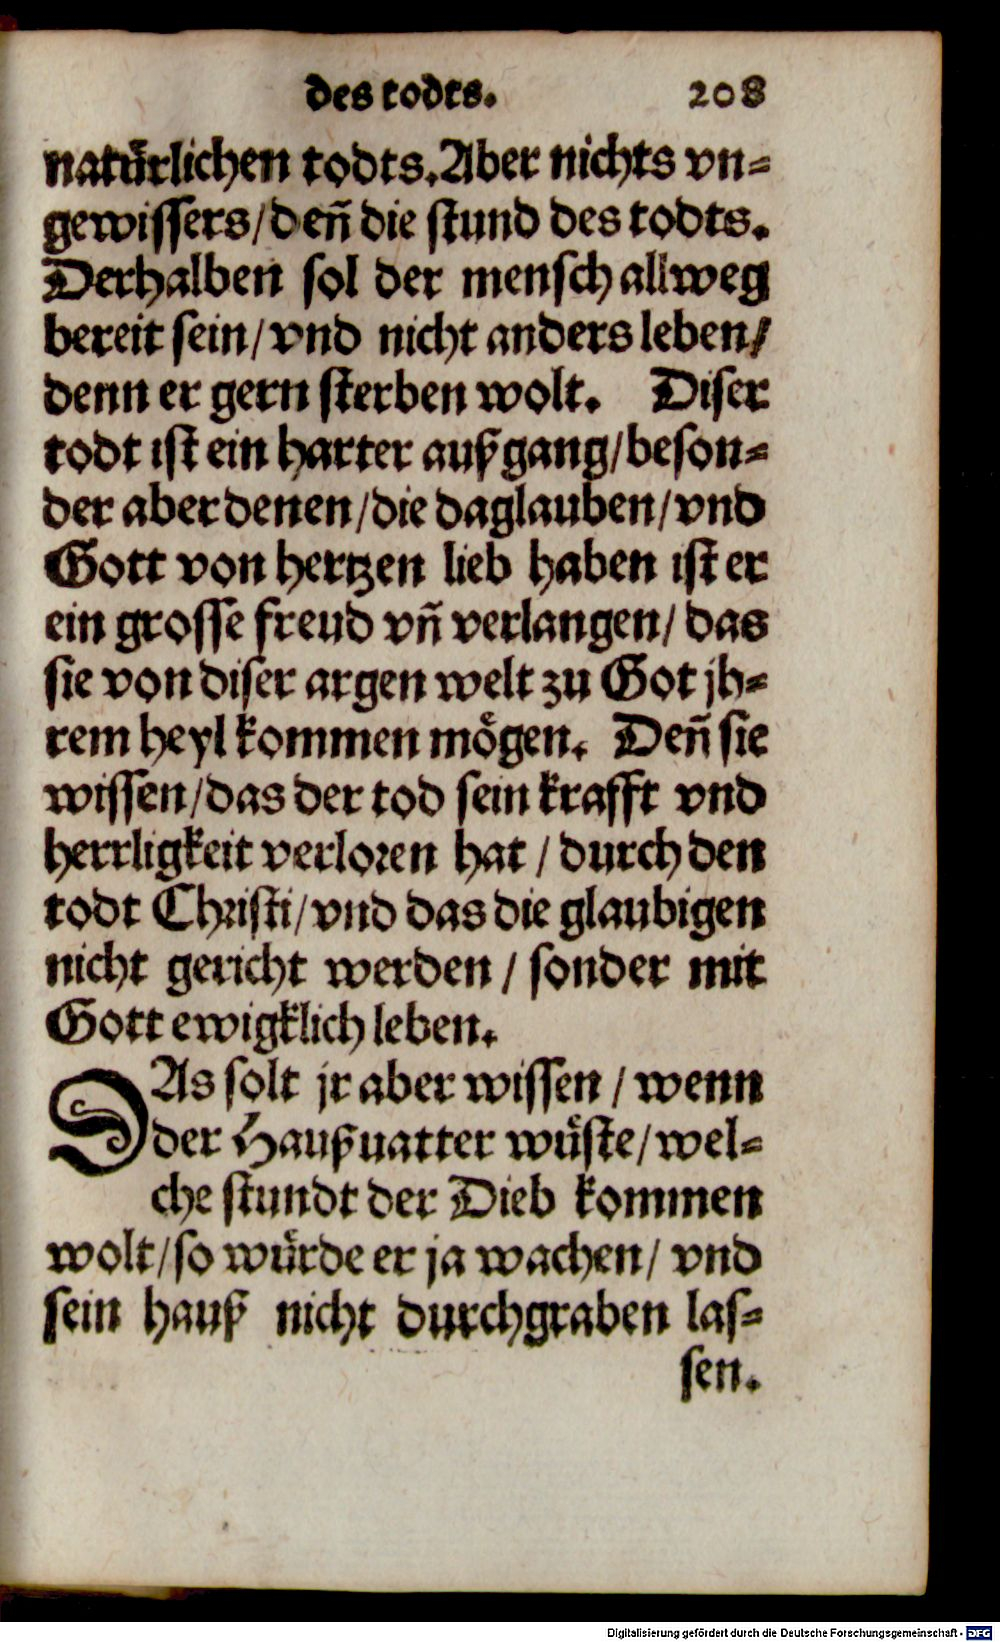 des todts. 208
natürlichen todts. Aber nichts vn⸗
gewissers/ deñ die stund des todts.
Derhalben sol der mensch allweg
bereit sein/ vnd nicht anders leben/
denn er gern sterben wolt. Diser
todt ist ein harter außgang/ beson⸗
der aber denen/ die da glauben/ vnd
Gott von hertzen lieb haben ist er
ein grosse freud vñ verlangen/ das
sie von diser argen welt zu Got jh⸗
rem heyl kommen mögen. Deñ sie
wissen/ das der tod sein krafft vnd
herrligkeit verloren hat / durch den
todt Christi/ vnd das die glaubigen
nicht gericht werden / sonder mit
Gott ewigklich leben.
DAs solt jr aber wissen / wenn
der Haußuatter wüste/ wel⸗
che stundt der Dieb kommen
wolt/ so würde er ja wachen/ vnd
sein hauß nicht durchgraben las⸗
sen.
Digitalisierung gefördert durch die Deutsche Forschungsgemeinschaft - DFG